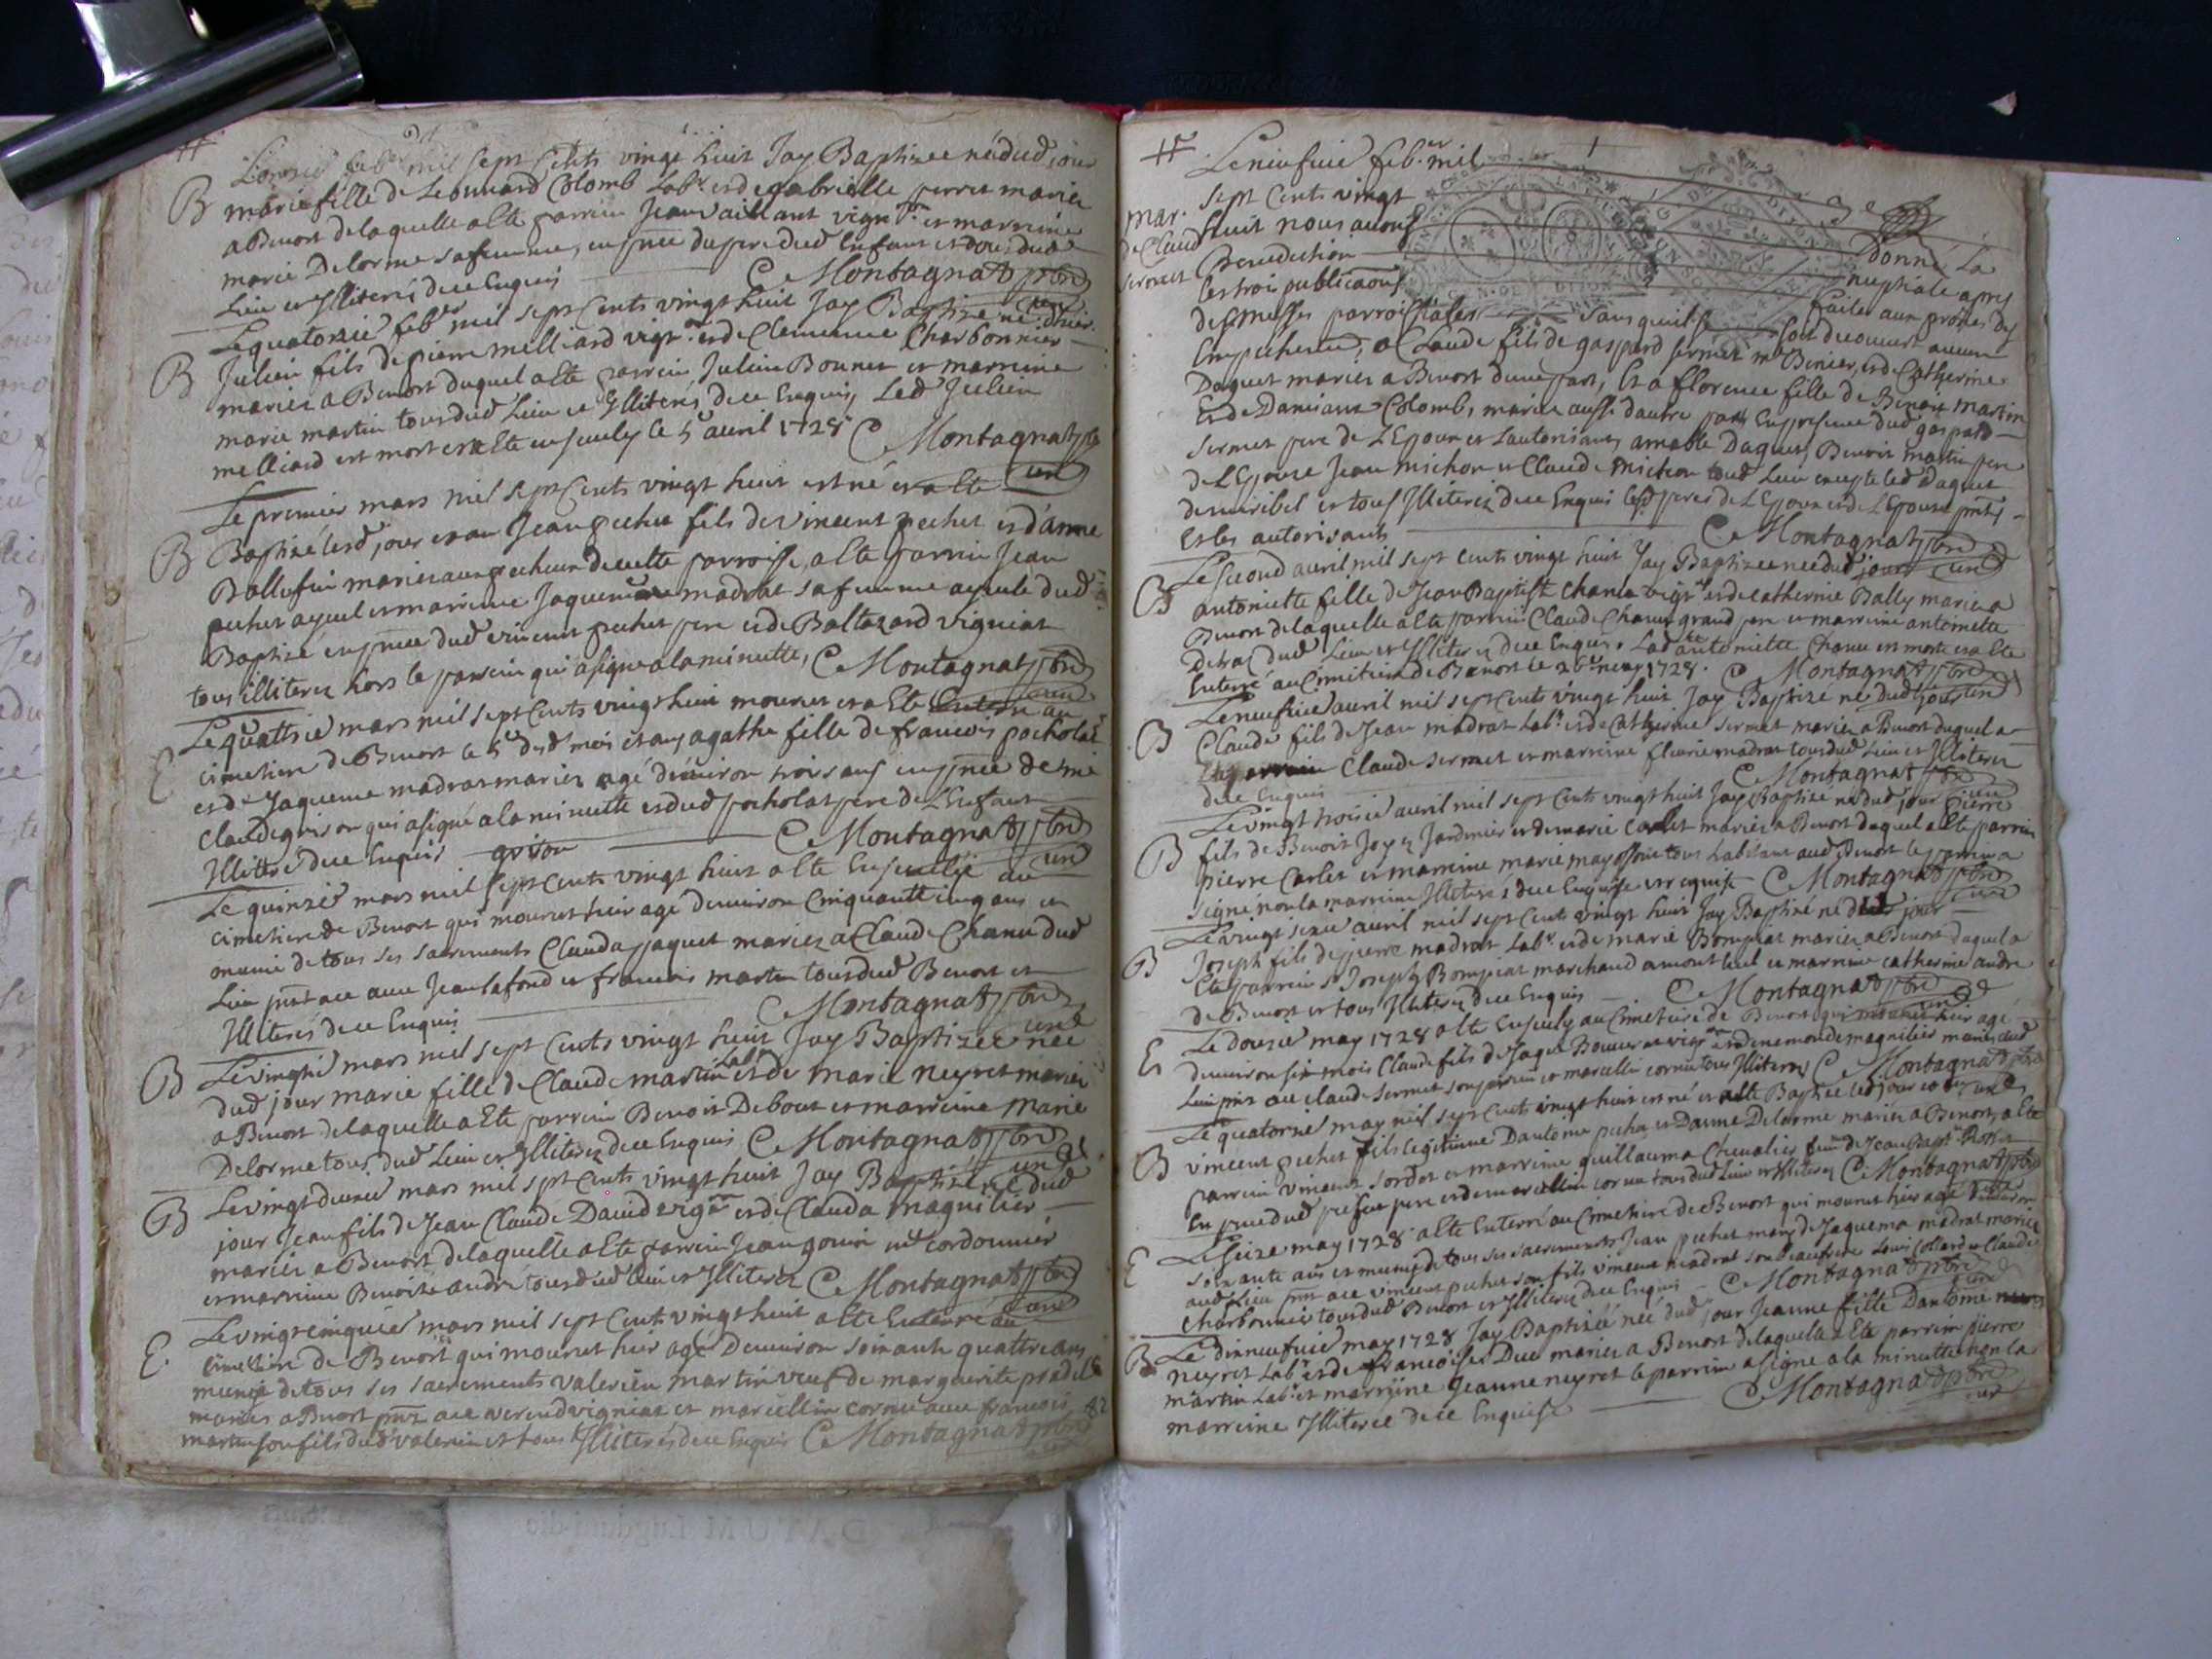 L'onzié feb.er mil sept Cents vingt huit Jay Baptizee née dud jour
B marie fille de Leonnard Colomb Lab.r et de gabrielle perret mariez
a Benost de laquelle a Ete parrein Jean Vaillant vign.on et marreine
marie Delorme sa femme, en pnce du pere dud Enfant
Lieu et Illiterés de ce Enquis C Montagnat ptre
curé
Le quatorzié feb.er mil sept Cents vingt huit Jay Baptize né d'hier
B Julien fils de pierre melliard vign.on et de Clemence Charbonnier
mariez a Benost duquel a Ete parrein Julien Bonnet et marreine
marie martin tous dud Lieu et Illiterés de ce Enquis, Led Julien
melliard est mort et a Ete ensevely le 5e auril 1728 C Montagnat ptre
curé
Le premier mars mil sept Cents vingt huit est né et a Ete
B Baptizé lesd jour et an Jean pechet fils de vincent pechet et d'anne
Ballufin mariez aussy pecheur de cette parroisse, a Ete parrein Jean
pechet ayeul et marreine Jaquema madrat sa femme ayeule dud
Baptizé en pnce dud vincent pechet pere et de Baltazard vigniat
tous illiterez hors le parrein qui a signe a la minutte, C Montagnat ptre
curé
Le quattrié mars mil sept Cents vingt huit mourut et a Ete Enterré au
E cimetiere de Benost le 5e dud mois et an agathe fille de francois pocholat
et de Jaqueme madrat mariez agé d'environ trois ans en pnce de mre
Claude grison qui a signé a la minutte et dud pocholat pere de L'Enfant
Illiteré de ce Enquis grison C Montagnat ptre
curé
Le quinzié mars mil sept Cents vingt huit a Ete Ensevelie au
cimetiere de Benost qui mourut hier age d'environ Cinquante cinq ans et
munie de tous ses sacrements Clauda jaquet mariez a Claude Chanu dud
Lieu pnt ace avec Jean Lafond et francois martin tous dud Benost et
Illiterés de ce Enquis C Montagnat ptre
curé
Le vingtié mars mil sept Cents vingt huit Jay Baptizee née
B dud jour marie fille de Claude martin Lab.r et de marie neyret mariez
a Benost de laquelle a Ete parrein Benoit Debout et marreine marie
Delorme tous dud Lieu et Illiterez de ce Enquis C Montagnat ptre
curé
Le vingt deuxié mars mil spt Cents vingt huit Jay Baptizé né dud
B jour Jean fils de Jean Claude David vign.on et de Clauda magnilier
mariez a Benost de laquelle a Ete parrein Jean gouin mre cordonnier
et marreine Benoite andré tous dud lieu et Illiterez C Montagnat ptre
curé
Le vingt cinquié mars mil sept Cent vingt huit a Ete Enterré au
E cimetiere de Benost qui mourut hier agé d'environ soixante quattre ans
munis de tous ses sacrements valerien martin veuf de marguerite
mariez a Benost pnt ace vigniat et marcellin cornu avec francois
martin son fils dud valerien et tous Illiterés de ce Enquis C Montagnat ptre
curé
Le neufuié feb.er mil
sept Cents vingt
mar. huit nous auons donné La
de Claud Benediction nuptiale apres
sermet les trois publicaons faites aux prônes des
des messes parroissiales sans quil se soit decouuert aucun
Empechement, a Claude fils de gaspard sermet mre et de Catherine
Daquet mariez a Benost d'une part, Et a florence fille de Benoit martin
et de Damianne Colomb, mariez aussi d'autre part En presence dud gaspard
sermet pere de L'Epoux et Lautorisant, amable Daquet, Benoit martin pere
de L'Epouse Jean michon et Claude michon tous dud Lieu excepte led Daquet
de miribel et tous Illiterez de ce Enquis lesd peres de L'Epoux et de L'Epouse pnts
et les autorisants C Montagnat ptre
curé
Le second auril mil sept cents vingt huit Jay Baptizee nee dud jour
B antoinette fille de Jean Baptiste Chanu vign.on et de catherine Bally mariez a
Benost de laquelle a Ete parrein Claude Chanu grand pere et marreine antoinette
dud Lieu et Illiterez de ce Enquis. Lad antoinette Chanu est morte et a Ete
Enterré au Cimetiere de Benost le 26e may 1728. C Montagnat ptre
curé
Le neufuié auril mil sept Cents vingt huit Jay Baptizé né dud jour
B Claude fils de Jean madrat Lab.r et de Catherine sermet mariez a Benost duquel a
Ete parrein Claude sermet et marreine fleurie madrat tous dud Lieu et Illiterez
de ce Enquis C Montagnat ptre
curé
Le vingt troisié auril mil sept cents vingt huit Jay Baptizé né dud jour pierre
B fils de Benoit Joyez Jardinier et de marie Carlet mariez a Benost duquel a Ete parrein
pierre Carlet et marreine marie tous habitans aud Benost le parrein a
signé non la marreine Illiteree de ce Enquise et requise C Montagnat ptre
curé
Le vingt sixié auril mil sept Cents vingt huit Jay Baptizé né dud jour
B Joseph fils de pierre madrat Lab.r et de marie Bompiat mariez a Benost duquel a
Ete parrein sr Joseph Bompiat marchand a montluel et marreine catherine andre
de Benost et tous Illiterez de ce Enquis C Montagnat ptre
curé
Le douzié may 1728 a Ete Ensevely au Cimetiere de Benost qui mourut hier age
E d'environ six mois Claude fils de Jaque vign.on et de magnilier mariez dud
Lieu pnt ace claude sermet son parrein et marcellin cornu tous Illiterez C Montagnat ptre
curé
Le quatorzié may mil sept Cents vingt huit est né et a Ete Baptizé led jour et an
B vincent pechet fils legitime Dantoine pechet et Danne Delorme mariez a Benost, a Ete
parrein vincent sordet et marreine guillauma Chevalier fem.e de Jean Bapt.
En pnce dud pechet pere et de marcellin cornu tous dud Lieu et Illiterez C Montagnat ptre
curé
Le seize may 1728 a Ete Enterré au Cimetiere de Benost qui mourut hier agé d'environ
E soixante ans et munis de tous ses sacrements Jean pechet mary de Jaquema madrat mariez
aud Lieu pnt ace vincent pechet son fils, vincent madrat son beaufrere Louis Collard et Claude
Charbonnier tous dud Benost et Illiterez de ce Enquis C Montagnat ptre
curé
Le dixneufuié may 1728 Jay Baptizéé née dud jour Jeanne fille Dantoine
B neyret Lab.r et de francoise Duc mariez a Benost de laquelle a Ete parrein pierre
martin Lab.r et marreine Jeanne neyret le parrein a signe a la minutte non la
marreine Illiteree de ce Enquise C Montagnat ptre
curé